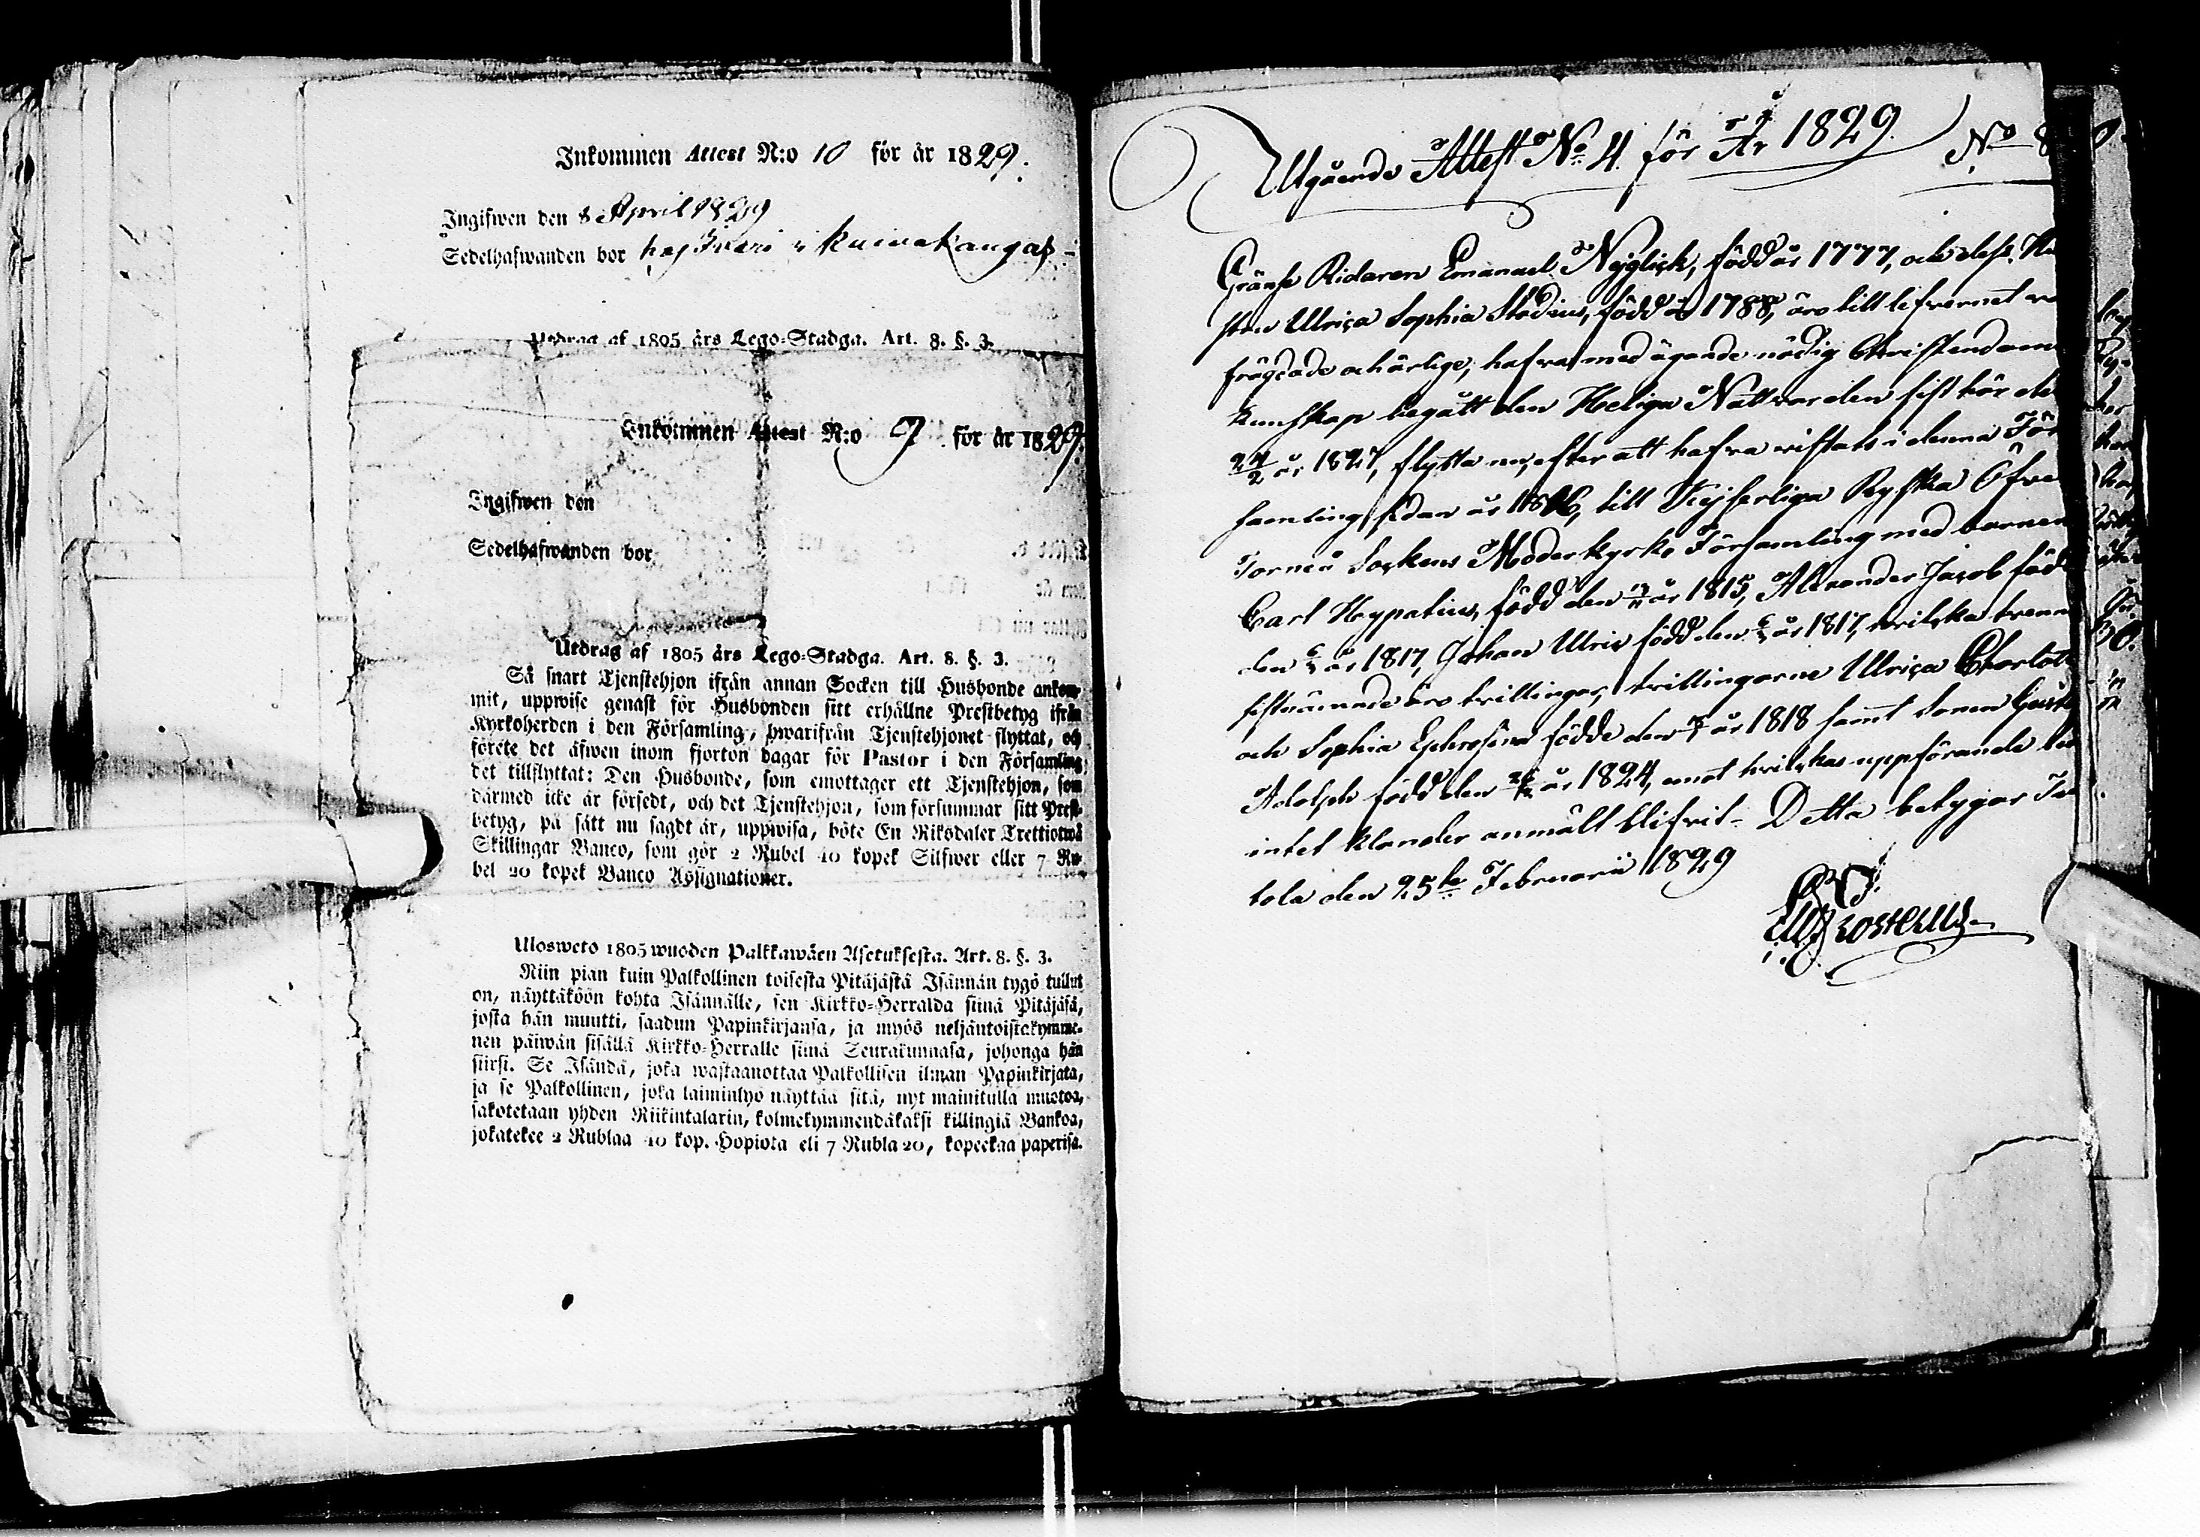 Inkommen Attest N:o 10 för år 1829.
Ingifwen den 8 April 1829
Sedelhafwanden bor hos Iwari i Kuiwakangas
Utdrag af 1805 års Lego-Stadga. Art. 8. §. 3.
Inkommen Attest N:o 9 för år 1829.
Ingifwen den
Sedelhafwanden bor
Utdrag af 1805 års Lego-Stadga. Art. 8. §. 3.
Så snart Tjenstehjon ifrån annan Socken till Husbonde ankom-
mit, uppwise genast för Husbonden sitt erhållne Prestbetyg ifrån
Kyrkoherden i den Församling, hwarifrån Tjenstehjonet flyttat, och
förete det äfwen inom fjorton dagar för Pastor i den Församling
det tillflyttat: Den Husbonde, som emottager ett Tjenstehjon, som
därmed icke är försedt, och det Tjenstehjon, som försummar sitt Prest-
betyg, på sätt nu sagdt är, uppwisa, böte En Riksdaler Trettiotwå
Skillingar Banco, som gör 2 Rubel 40 kopek Silfwer eller 7 Ru-
bel 20 kopek Banco Assignationer.
Ulosweto 1805 wuoden Palkkawäen Asetuksesta. Art. 8. §. 3.
Niin pian kuin Palkollinen toisesta Pitäjästä Isännän tygö tullut
on, näyttäköön kohta Isännälle, sen Kirkko-Herralda siinä Pitäjäsä,
josta hän muutti, saadun Papinkirjansa, ja myös neljäntoistakymme-
nen päiwän sisällä Kirkko-Herralle siinä Seurakunnasa, johonga hän
siirsi. Se Isändä, joka wastaanottaa Palkollisen ilman Papinkirjata,
ja se Palkollinen, joka laiminlyö näyttää sitä, nyt mainitulla muotoa,
sakotetaan yhden Riikintalarin, kolmekymmendäkaksi killingiä Bankoa,
jokatekee 2 Rublaa 40 kop. Hopiota eli 7 Rubla 20, kopeekaa paperisa.
Utgående Attest No 4. för År 1829. No 8
Gränse Ridaren Emanuel Nejglick, född år 1777, och dess Hu
stru Ulrica Sophia Stodius, född år 1788, äro till lefvernet wä
frägdade och ärlige, hafva med ägande nödig Christendoms
kunskap begått den Heliga Nattvarden sist här den
24/2 år 1827, flytta nu, efter att hafva vistats i denna För
samling sedan år 1816, till Kejserliga Ryska Öfver
Torneå Sockens Moderkyrko Församling med barnen
Carl Hypatius, född den år 1815, Alexander Jacob född
den år 1817, Johan Ulric född den år 1817, hvilka tvenne
sistnämnde äro tvillingar, tvillingarne Ulrica Charlott
och Sophia Ephrosina födde den år 1818 samt Sonen Gust
Adolph född den år 1824, emot hvilkas uppförande
intet klander anmält blifvit. Detta betygar
tola den 25te Februarii 1829